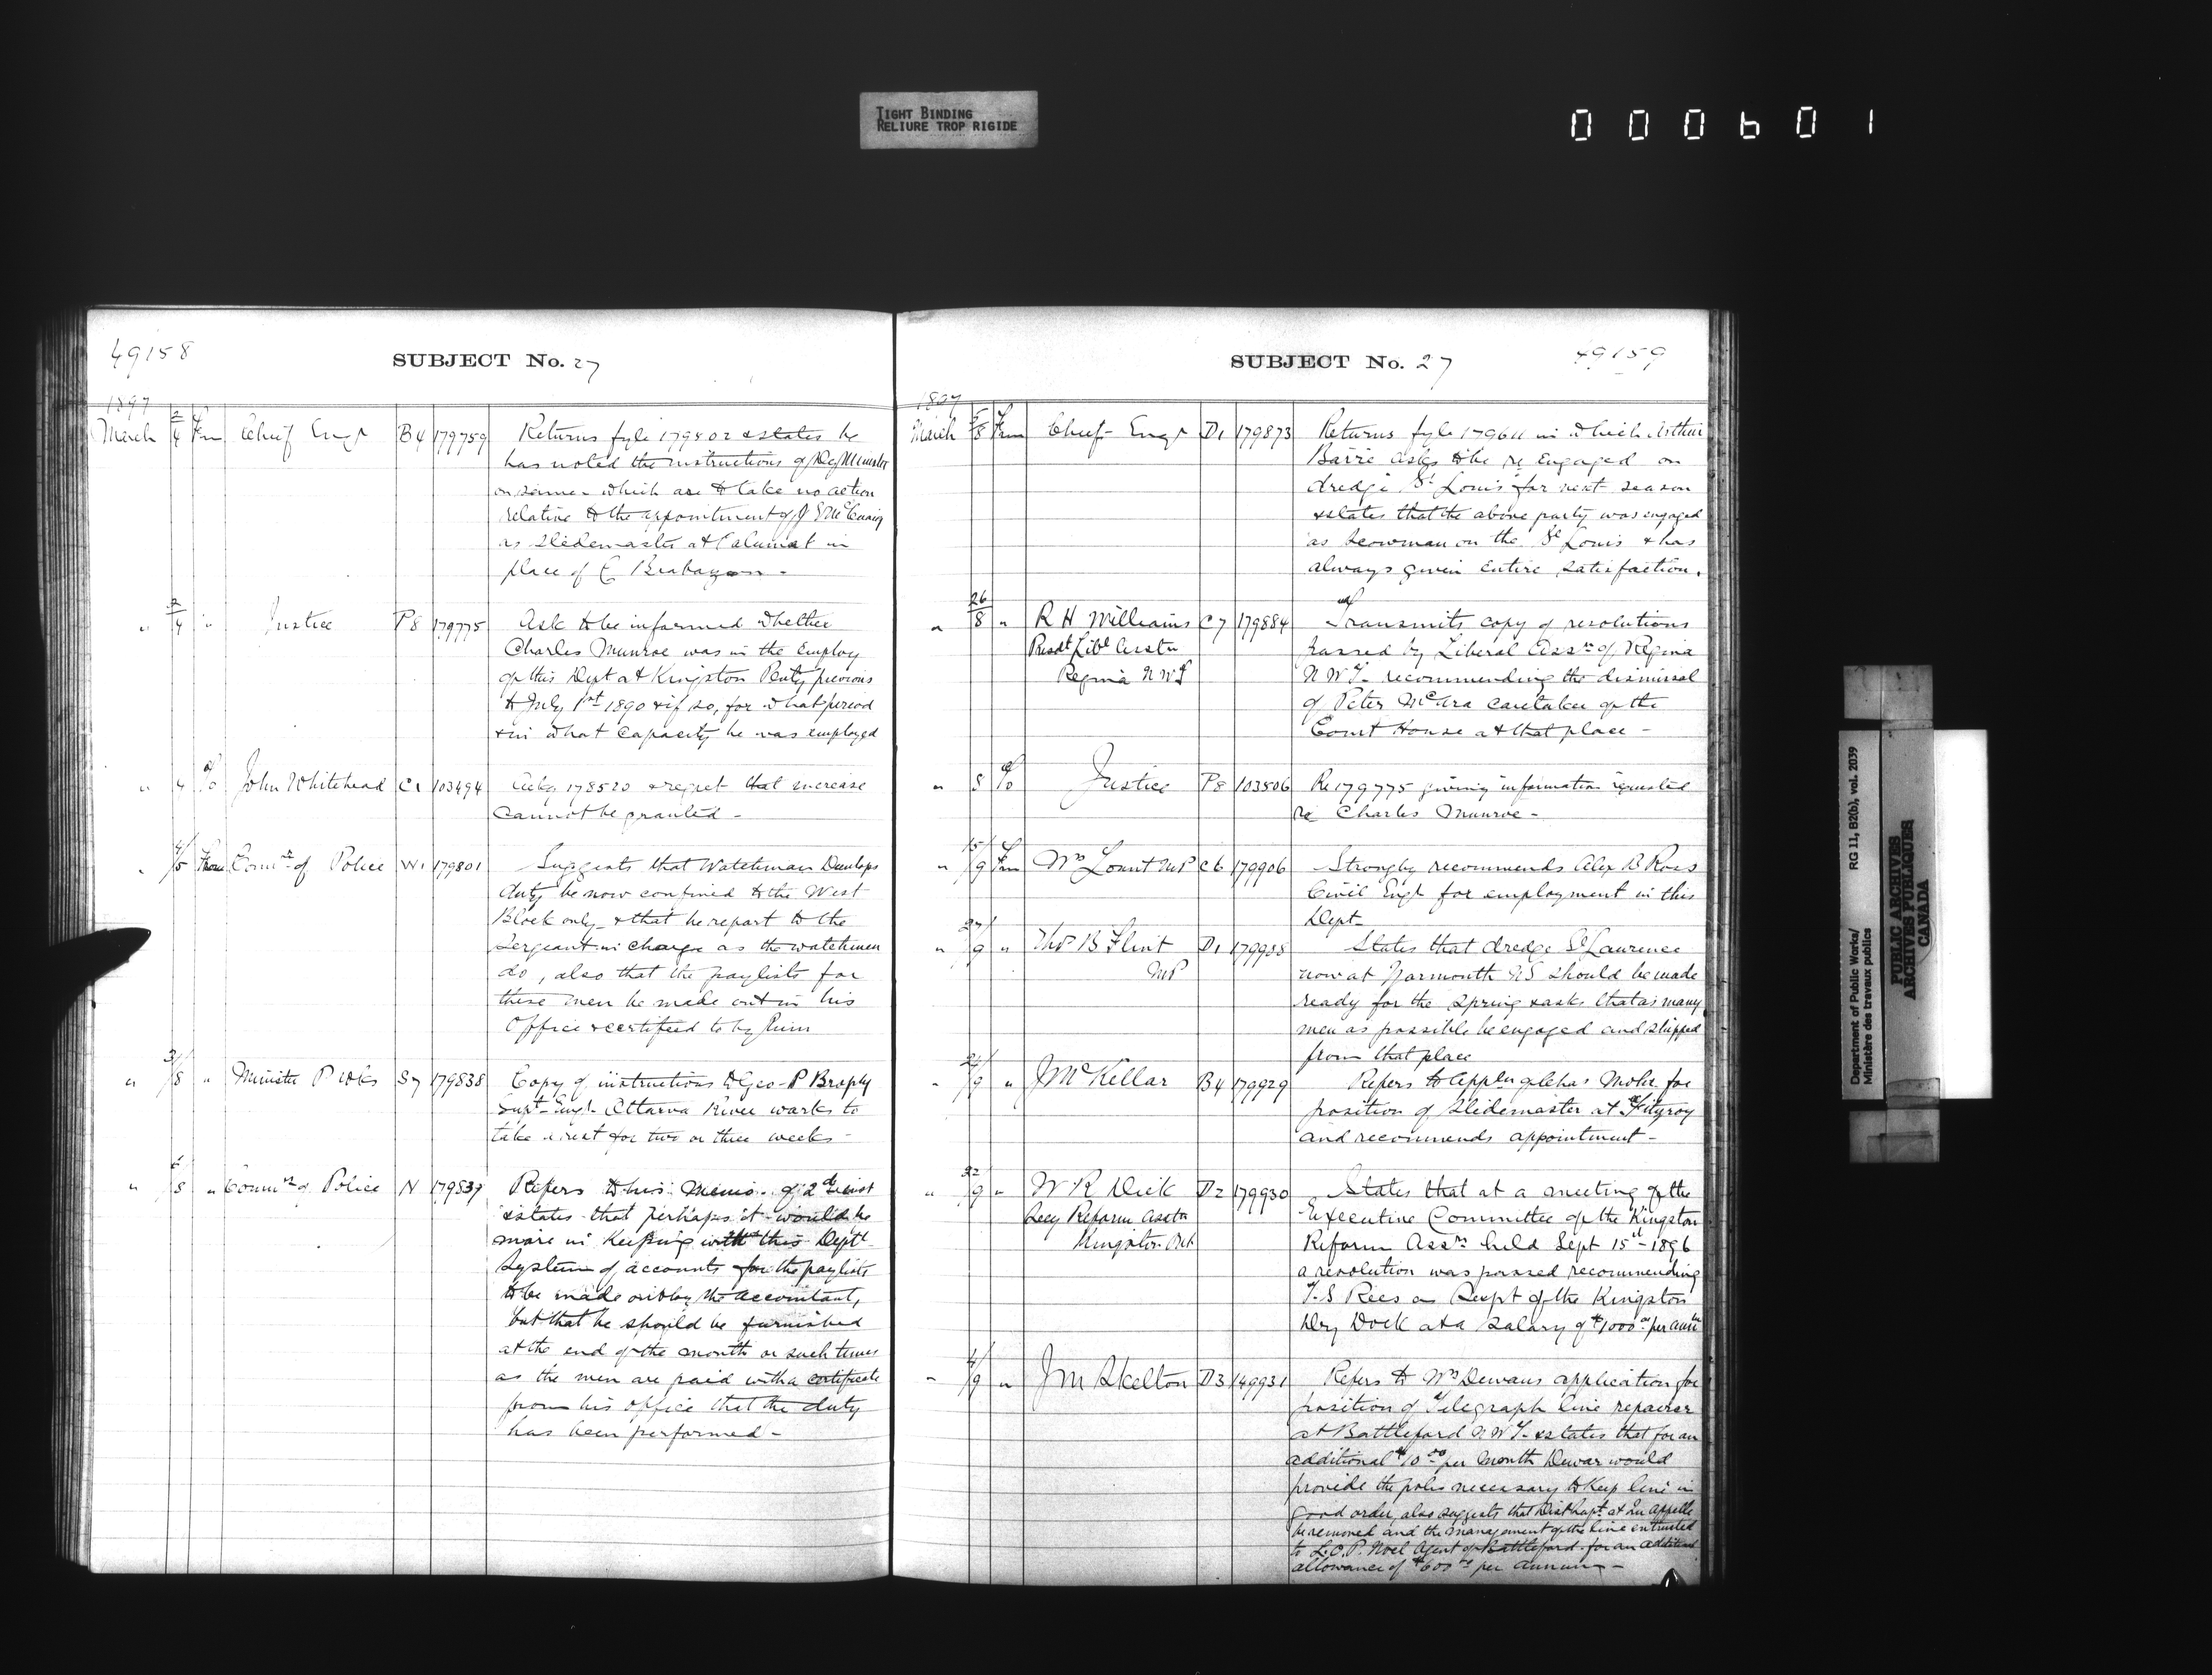 TIGHT BINDING
RELIURE TROP RIGIDE
000601
49158
SUBJECT No. 27
1897
March 2/4 Frm Chief Engr B4 179759 Returns fyle 179502 & states he
has noted the instructions of Dep Minister
on same - which are to take no action
relative to the appointment of J S McCuaig
as Slidemaster at Calumet in
place of E Brabazon -
" 2/4 " Justice P8 179775 Ask to be informed whether
Charles Munroe was in the employ
of this Dept at Kingston Penty previous
to July 1st 1890 & if so, for what period
& in what capacity he was employed
" 4 To John Whitehead C1 103494 Ackg 178520 & regret that increase
cannot be granted -
" 4/5 From Commr of Police W1 179801 Suggests that Watchman Dunlops
duty be now confined to the West
Block only & that he report to the
Sergeant in charge as the watchmen
do, also that the paylists for
these men be made out in his
Office & certified to by him
" 3/8 " Minister P Wks S7 179838 Copy of instructions to Geo - P Brophy
Supt - Engr Ottawa River works to
take a rest for two or three weeks -
" 5/8 " Commr of Police N 179839 Refers to his memo. of 2d inst
& states that perhaps it would be
more in keeping with this Depts
System of accounts for the paylists
to be made out by the accountant,
but that he should be furnished
at the end of the month or such times
as the men are paid with a certificate
from his office that the duty
has been performed -
49159
SUBJECT No. 27
1897
March 5/8 Frm Chief Engr D1 179873 Returns fyle 179611 in which Arthur
Barrie asks to be re engaged on
dredge St Louis for next season
& states that the above party was engaged
as Scowman on the St Louis & has
always given entire satisfaction.
" 26/8 " R H Williams C7 179884 Transmits copy of resolutions
Presdt Libl Asstn passed by Liberal Assn of Regina
Regina N W T N W T - recommending the dismissal
of Peter McAra caretaker of the
Court House at that place -
" 8 To Justice P8 103506 Re 179775 giving information requested
re Charles Munroe -
" 15/9 Frm Wm Lount MP C6 179906 Strongly recommends Alex B Ross
Civil Engr for employment in this
Dept -
" 27/9 " Thos B Flint D1 179908 States that dredge St Lawrence
MP now at Yarmouth NS should be made
ready for the Spring & asks that as many
men as possible be engaged and shipped
from that place
" 24/9 " J McKellar B4 179929 Refers to appln of Chas Mohr for
position of Slidemaster at Fitzroy
and recommends appointment -
" 22/9 " W R Dick D2 179930 States that at a meeting of the
Secy Reform Asstn Executive Committee of the Kingston
Kingston Ont Reform Assn held Sept 15th - 1896
a resolution was passed recommending
T. S Rees as Supt of the Kingston
Dry Dock at a Salary of $1000.00 per annm
" 4/9 " J M Skelton D3 149931 Refers to Wm Dewans application for
position of Telegraph line repairer
at Battleford N W T - & states that for an
additional $10.00 per month Dewar would
provide the poles necessary to keep line in
good order, also suggests that Dist Supt at Qu Appelle
be removed and the management of the line entrusted
to L.C.P. Noel Agent of Battleford for an additional
allowance of $600.00 per annum -
Department of Public Works/ RG 11, B2(b), vol. 2039
Ministère des travaux publics
PUBLIC ARCHIVES
ARCHIVES PUBLIQUES
CANADA